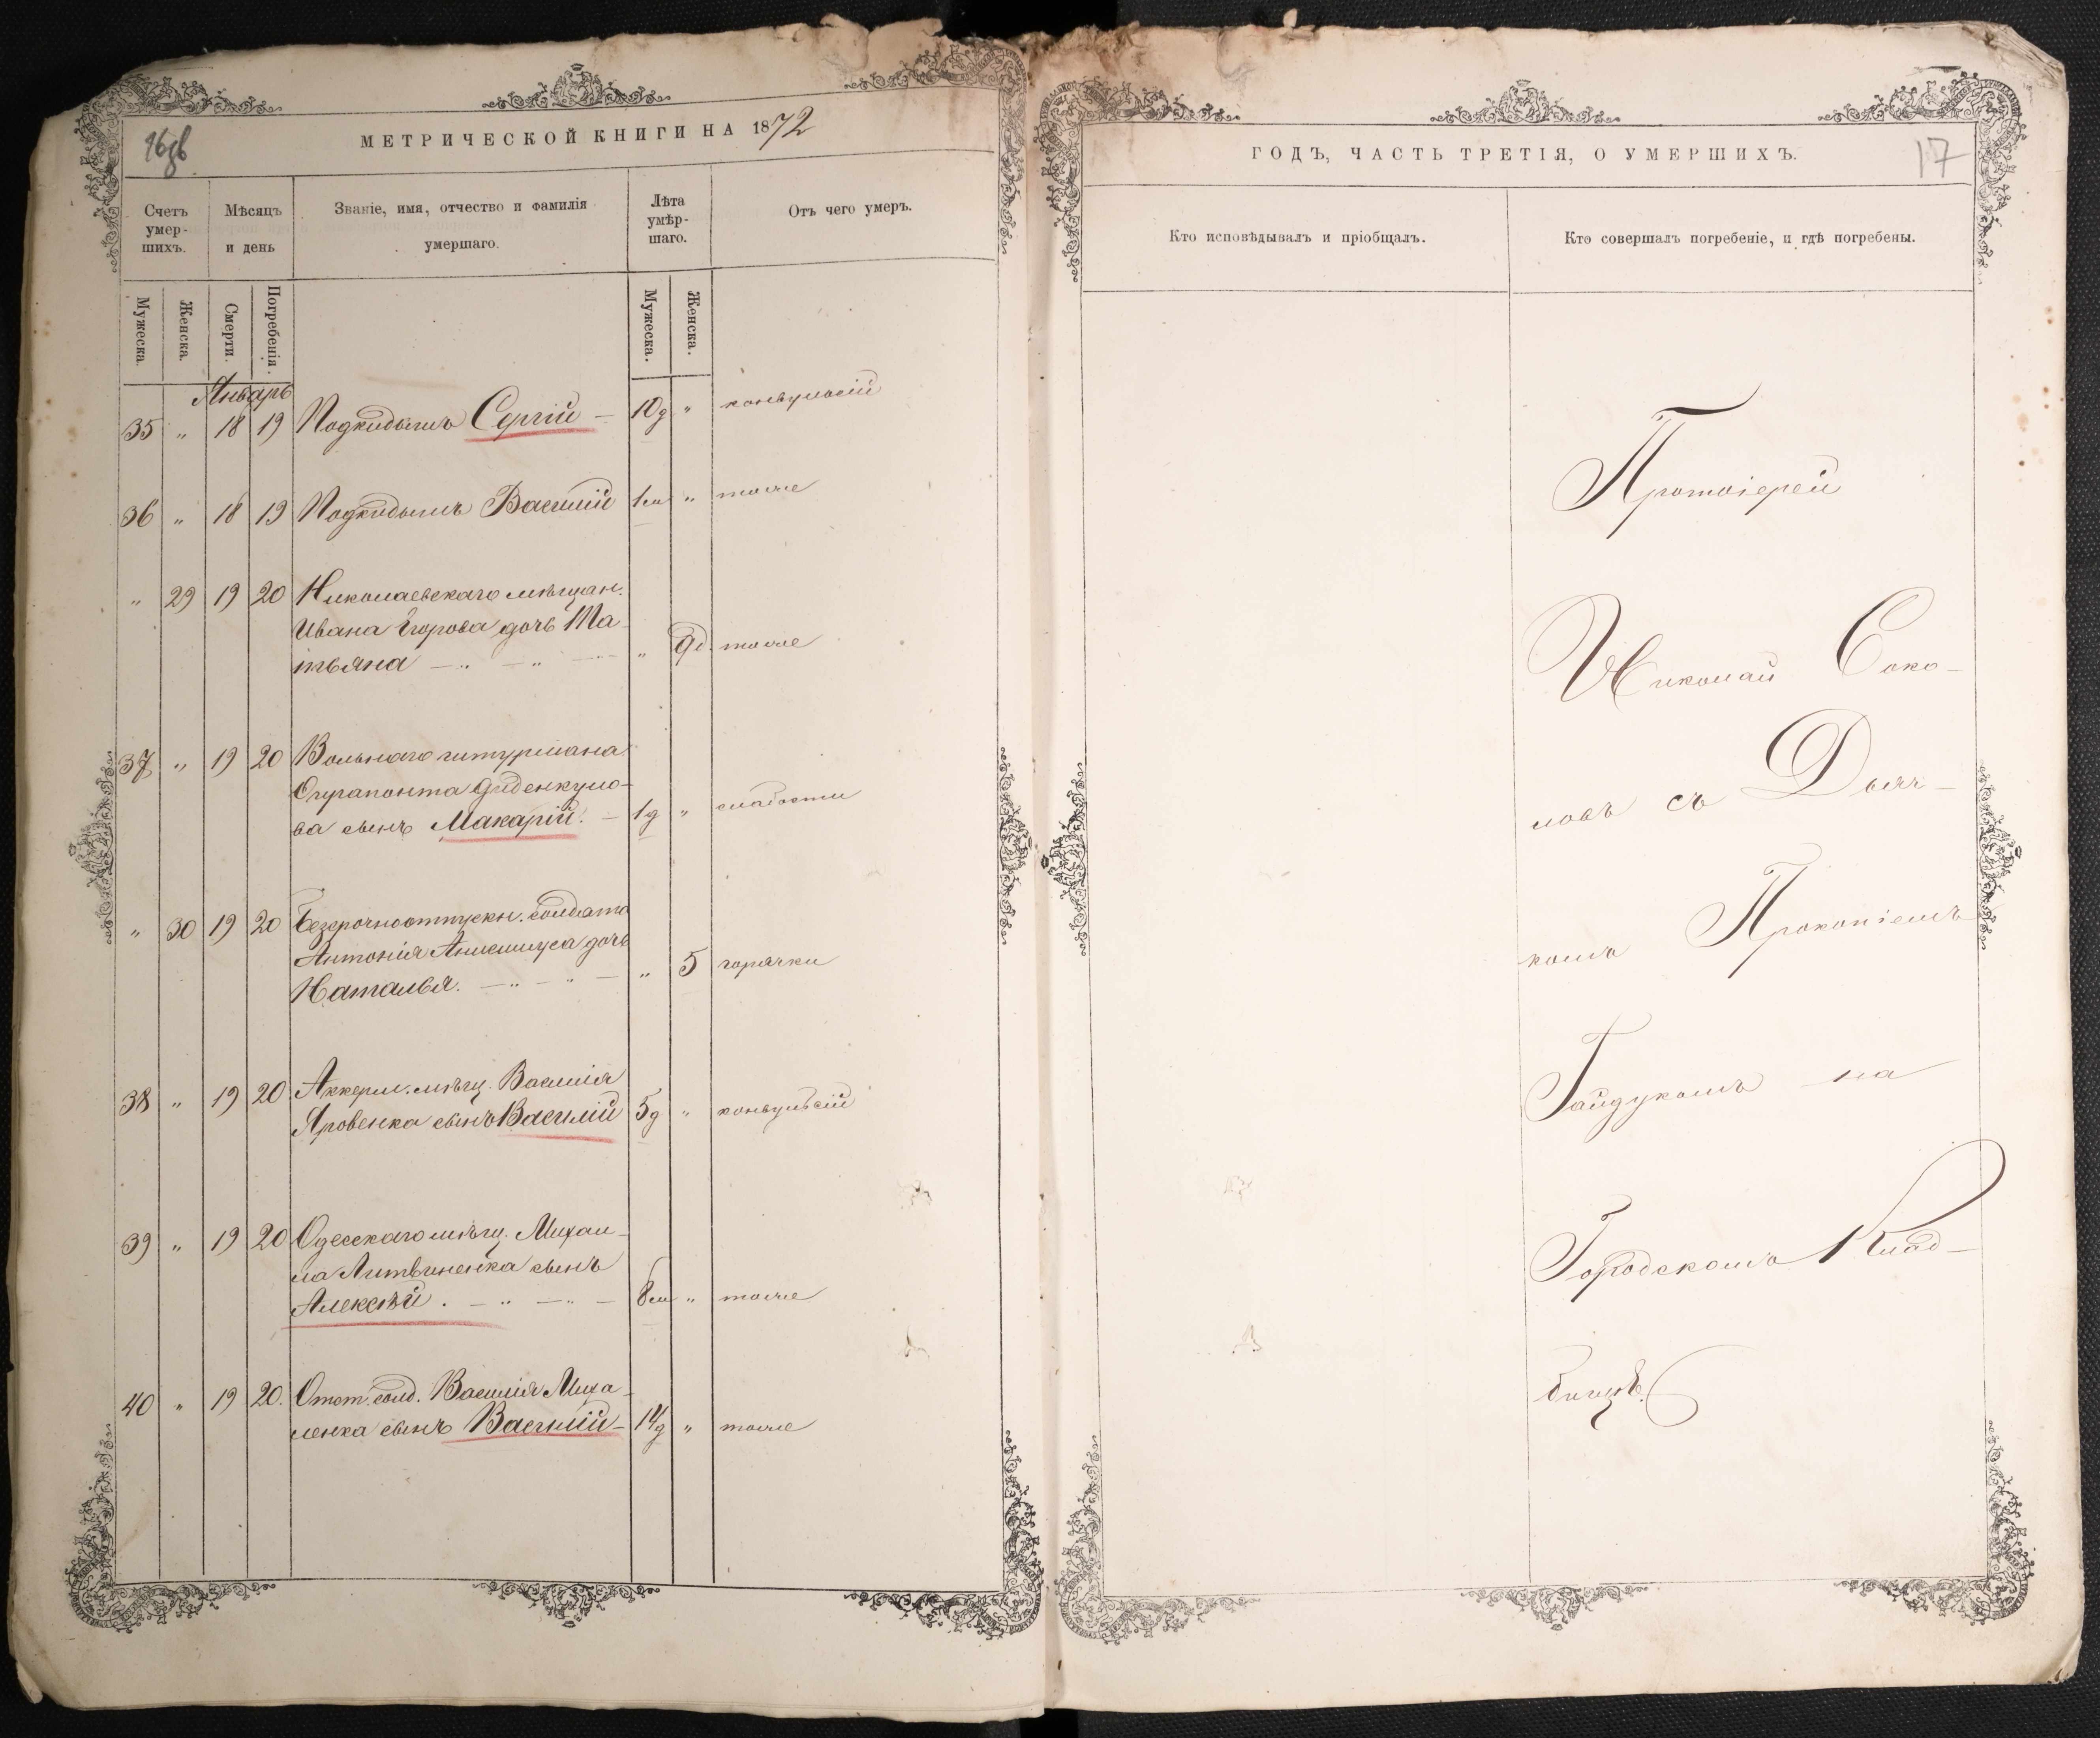 МЕТРИЧЕСКОЙ КНИГИ НА 1872
Счетъ умер-шихъ.
Мѣсяцъ и день
Званіе, имя, отчество и фамилія умершаго.
Лѣта умѣр-шаго.
Отъ чего умеръ.
Мужеска
Женска.
Смерти.
Погребенія.
Мужеска.
Женска.
Январь
35 „ 18 19 Подкидышъ Сергій — 10д „ конвульсій
36 „ 18 19 Подкидышъ Василій 1м „ тоже
„ 29 19 20 Николаевскаго мѣщан.
Ивана Егорова дочь Та-
тьяна „ 9д. тоже
37 „ 19 20 Вольнаго штурмана
ва сынъ Макарій. — 1д „ слабости
„ 30 19 20 Безсрочноотпускн. солдата
Антонія дочь
Наталья. „ 5 горячки
38 „ 19 20 Аккерм. мѣщ. Василія
Яровенка сынъ Василій 5д „ конвульсій
39 „ 19 20 Одесскаго мѣщ. Михаи-
ла Литвиненка сынъ
Алексѣй. 8м „ тоже
40 „ 19 20. Отст. солд. Василія Миха-
ленка сынъ Василій — 14д „ тоже
ГОДЪ, ЧАСТЬ ТРЕТІЯ, О УМЕРШИХЪ.
17
Кто исповѣдывалъ и пріобщалъ.
Кто совершалъ погребеніе, и гдѣ погребены.
Протоіерей
Николай Соко-
ловъ съ Дьяч-
комъ Прокопіемъ
Гайдукомъ на
Городскомъ Клад-
бищѣ.